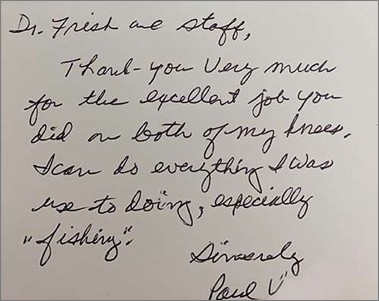 Dr. Frish and Staff,
Thank-you Very much
for the excellent job you
did on both of my knees.
I can do everything I was
use to doing, especially
"fishing".
Sincerely
Paul V